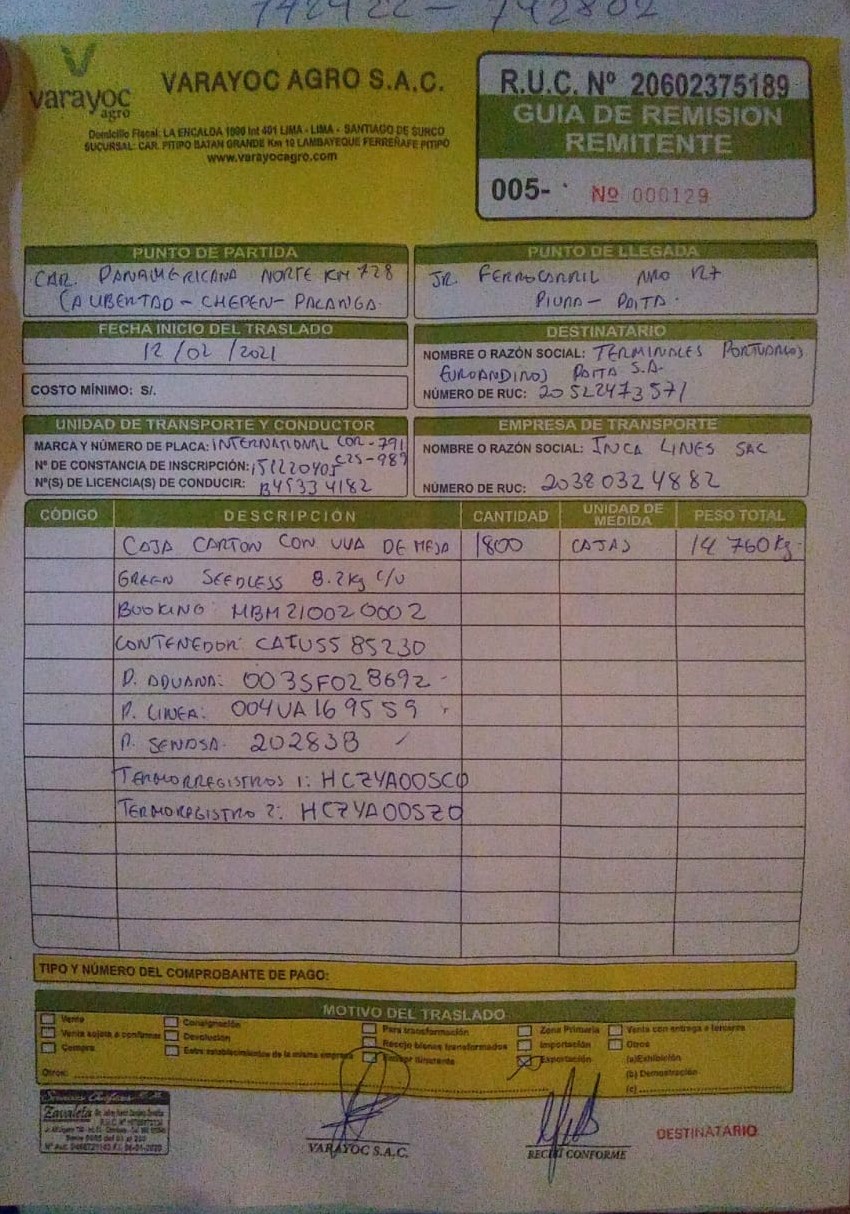 742422 - 742802
varayoc
agro
VARAYOC AGRO S.A.C.
Domicilio Fiscal: LA ENCALDA 1090 Int 401 LIMA - LIMA - SANTIAGO DE SURCO
SUCURSAL: CAR. PITIPO BATAN GRANDE Km 10 LAMBAYEQUE FERREÑAFE PITIPO
www.varayocagro.com
R.U.C. Nº 20602375189
GUIA DE REMISION
REMITENTE
005- Nº 000129
PUNTO DE PARTIDA
CAR. PANAMERICANA NORTE KM 728
LA LIBERTAD - CHEPEN - PACANGA.
PUNTO DE LLEGADA
JR. FERROCARRIL NRO 127
PIURA - PAITA.
FECHA INICIO DEL TRASLADO
12/02/2021
COSTO MÍNIMO: S/.
DESTINATARIO
NOMBRE O RAZÓN SOCIAL: TERMINALES PORTUARIOS
EUROANDINOS PAITA S.A.
NÚMERO DE RUC: 20522473571
UNIDAD DE TRANSPORTE Y CONDUCTOR
MARCA Y NÚMERO DE PLACA: INTERNATIONAL
Nº DE CONSTANCIA DE INSCRIPCIÓN: 151220405
Nº(S) DE LICENCIA(S) DE CONDUCIR: B45334182
EMPRESA DE TRANSPORTE
NOMBRE O RAZÓN SOCIAL: INCA LINES SAC
NÚMERO DE RUC: 20380324882
CÓDIGO DESCRIPCIÓN CANTIDAD UNIDAD DE MEDIDA PESO TOTAL
CAJA CARTON CON UVA DE MESA 1800 CAJAS 14 760 Kg.
GREEN SEEDLESS 8.2Kg C/U
BOOKING: MBM210020002
CONTENEDOR: CAIU5585230
P. ADUANA: 003SF028692
P. LINEA: 004UA169559
P. SENASA. 202838
TERMORREGISTROS 1: HCZYA00SC0
TERMOREGISTRO 2: HCZYA00SZ0
TIPO Y NÚMERO DEL COMPROBANTE DE PAGO:
MOTIVO DEL TRASLADO
Venta Consignación Para transformación Zona Primaria Venta con entrega a terceros
Venta sujeta a confirmar Devolución Recojo bienes transformados Importación Otros
Compra Entre establecimientos de la misma empresa Emisor itinerante Exportación (a)Exhibición
(b) Demostración
Otros: (c)
Zavaleta
VARAYOC S.A.C.
RECIBI CONFORME
DESTINATARIO